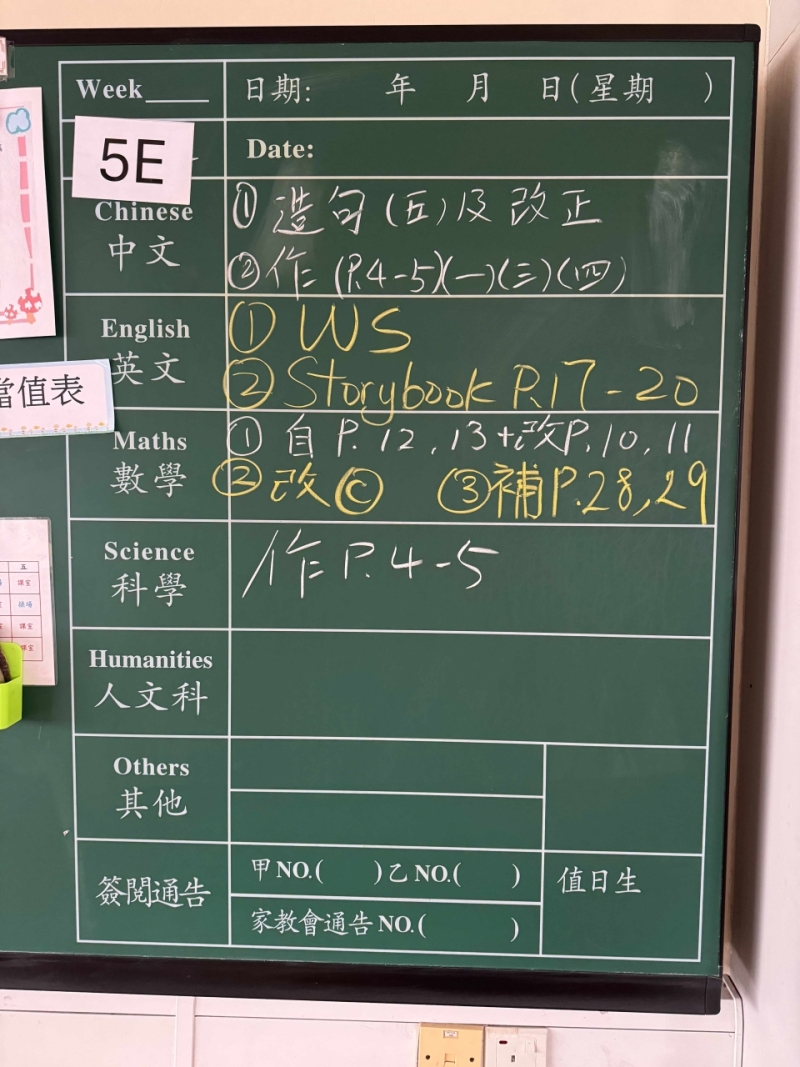 Week____ 日期: 年 月 日(星期 )
5E
Date:
Chinese
中文
① 造句(五)及改正
② 作 (P.4-5)(一)(三)(四)
English
英文
① WS
② Storybook P.17-20
當值表
Maths
數學
① 自 P.12,13+改P.10,11
② 改 © ③補P.28,29
Science
科學
作 P.4-5
五
課室
課室
課室
Humanities
人文科
Others
其他
簽閱通告
甲 NO.( )乙 NO.( )
家教會通告 NO.( )
值日生